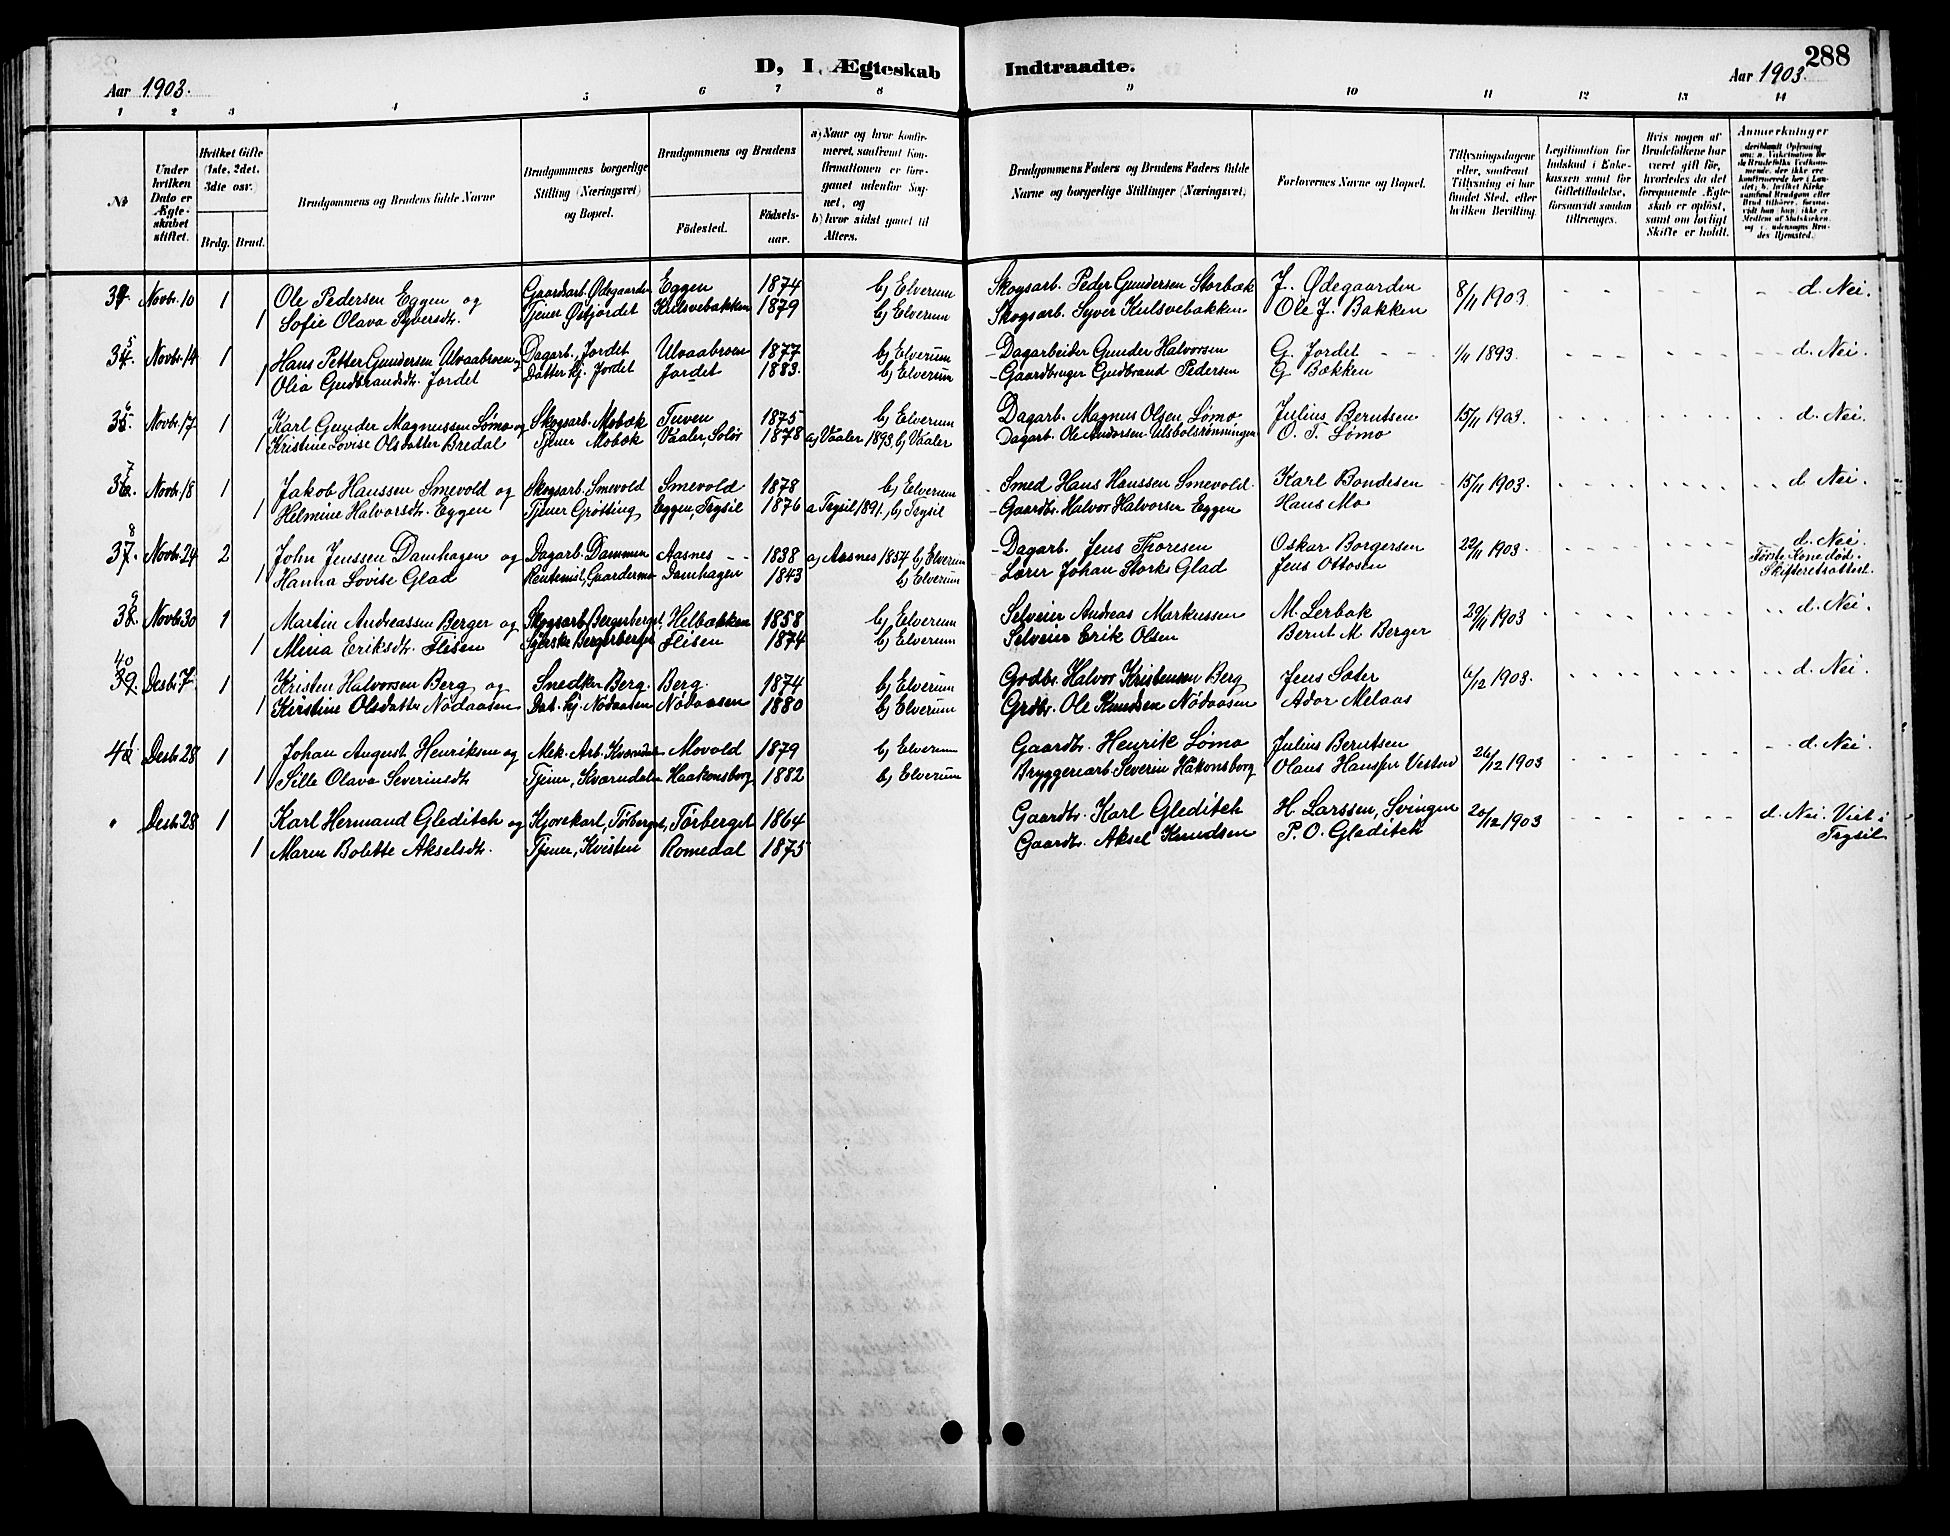 288
D, I Ægteskab Indtraadte.
Aar 1903. Aar 1903.
1 2 3 4 5 6 7 8 9 10 11 12 13 14
No
Under hvilken Dato er Ægteskabet stiftet.
Hvilket Gifte (1ste, 2det, 3dte osv.)
Brdg. Brud.
Brudgommens og Brudens fulde Navne
Brudgommens borgerlige Stilling (Næringsvei) og Bopæl.
Brudgommens og Brudens
Fødested. Fødselsaar.
a) Naar og hvor konfirmeret, saafremt Konfirmationen er foregaaet udenfor Sognet, og
b) hvor sidst gaaet til Alters.
Brudgommens Faders og Brudens Faders fulde Navne og borgerlige Stillinger (Næringsvei)
Forlovernes Navne og Bopæl.
Tillysningsdagene eller, saafremt Tillysning ei har fundet Sted, efter hvilken Bevilling.
Legitimation for Indskud i Enkekassen samt for Giftetilladelse, forsaavidt saadan tiltrænges.
Hvis nogen af Brudefolkene har været gift før, hvorledes da det foregaaende Ægteskab er opløst, samt om lovligt Skifte er holdt.
Anmærkninger
34 Novbr. 10 1 Ole Pedersen Eggen og Gaardsarb. Ødegaarden Eggen 1874 b) Elverum Skogsarb. Peder Gundersen Storbæk J. Ødegaarden 8/11 1903. d. Nei.
1 Sofie Olava Syversdtr. Tjener Østjordet Kulsvebakken 1879 b) Elverum Skogsarb. Syver Kulsvebakken Ole J. Bakken
34. 5 Novbr. 14 1 Hans Petter Gundersen Ulvaabroen og Dagarb. Jordet Ulvaabroen 1877 b) Elverum Dagarbeider Gunder Halvorsen G. Jordet 1/11 1893. d. Nei
1 Olia Gudbrandsdtr. Jordet Datter hj. Jordet Jordet 1883. b) Elverum Gaardbruger Gudbrand Pedersen G. Bækken
35. 6 Novbr. 17 1 Karl Gunder Magnussen Lømo og Skogsarb. Mobæk Tuven 1875 b) Elverum Dagarb. Magnus Olsen Lømo Julius Berntsen 15/11 1903. d. Nei.
1 Kristine Lovise Olsdatter Bredal Tjener Mobæk Vaaler, Solør 1878 a) Vaaler 1893 b) Vaaler Dagarb. Ole Andersen Ulsbolsrønningen O. T. Lømo
36. 7 Novbr. 18 1 Jakob Hanssen Smevold og Skogsarb. Smevold Smevold 1878 b) Elverum Smed Hans Hanssen Smevold Karl Bondesen 15/11 1903. d. Nei.
1 Helmine Halvorsdtr. Eggen Tjener Grøtting Eggen, Trysil 1876 a Trysil 1891, b) Trysil Gaardbr. Halvor Halvorsen Eggen Hans Mo
37. 8 Novbr. 24 2 John Jenssen Damhagen og Dagarb. Dammen Aasnes 1838 a) Aasnes 1854 b) Elverum Dagarb. Jens Thoresen Oskar Borgersen 22/11 1903. d. Nei.
1 Hanna Lovise Glad Rentenist, Gaardermo Damhagen 1843 b) Elverum Lærer Johan Storks Glad Jens Ottosen Første Kone død. Skifteretsattest.
38. 9 Novbr. 30 1 Martin Andreassen Berger og Skogsarb. Bergerberget, Helbækken 1858 b) Elverum Selveier Andreas Markussen M. Lerbæk 29/11 1903 d. Nei.
1 Mina Eriksdtr. Flisen Syerske Bergerberget Flisen 1874 b) Elverum Selveier Erik Olsen Bernt M. Berger
39. 40 Desbr. 7 1 Kristen Halvorsen Berg og Snedker Berg. Berg. 1874 b) Elverum Grdbr. Halvor Kristensen Berg Jens Sæter 6/12 1903. d. Nei.
1 Kirstine Olsdatter Nødaasen Dat. hj. Nødaasen Nødaasen 1880 b) Elverum Grdbr. Ole Knudsen Nødaasen Ador Melaas
40 1 Desbr. 28 1 Johan August Henriksen og Mek. Arb. Kværndalen Movold 1879 b) Elverum Gaardbr. Henrik Lømo Julius Berntsen 26/12 1903 d. Nei.
1 Sille Olava Severinsdtr Tjener, Kværndalen Haakonsborg 1882 b) Elverum Bryggeriarb. Severin Håkonsborg Olaus Hansen
" Desbr. 28 1 Karl Hermand Gleditch og Kjørekarl, Tørberget, Tørberget 1864 Gaardbr. Karl Gleditch H. Larssen, Svingen 20/12 1903 d. Nei. Viet i
1 Maren Bolette Akselsdtr. Tjener, Kvisten Romedal 1875 Gaardbr. Aksel Knudsen P. O. Gleditch Trysil